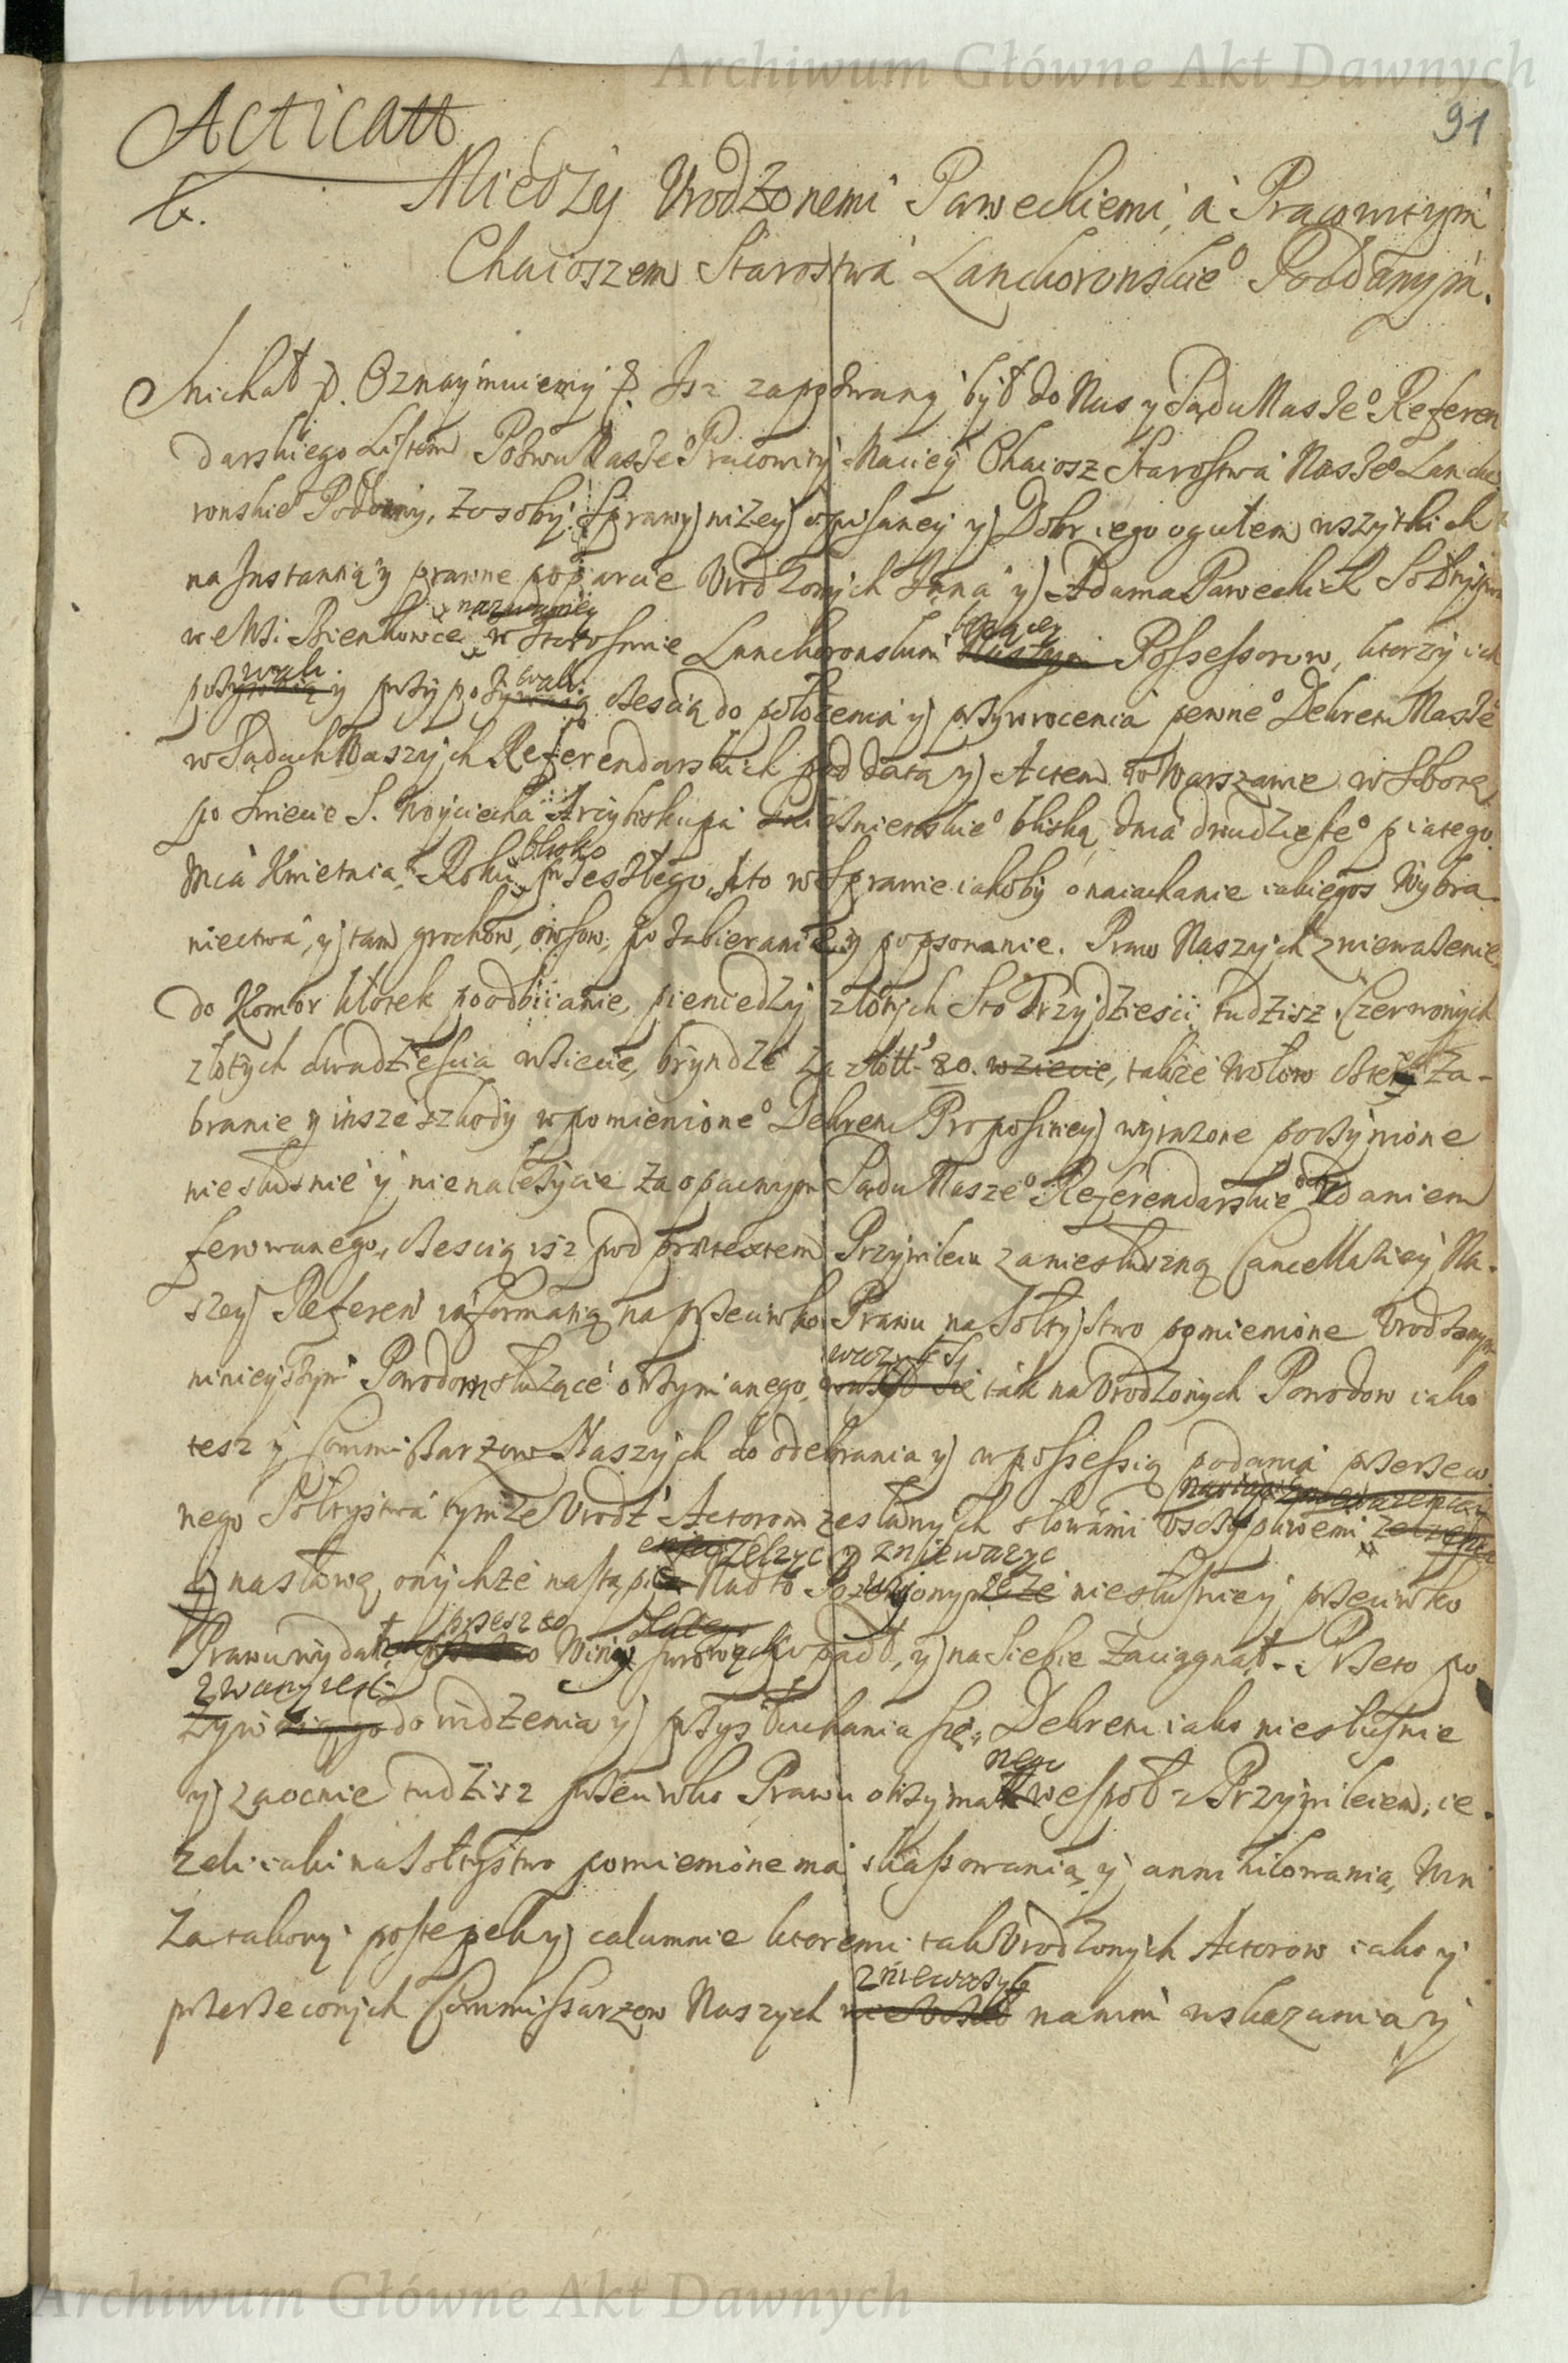 Archiwum Główne Akt Dawnych
91
Acticatt
Między Urodzonemi Paweckiemi, a Pracowitym
Chaioszem Starostwa Lanckoronskieº Poddanym.
Michał p. Oznaymuiemy p. Isz zapozwany był do Nas y Sądu Naszeº Referen
darskiego Listem Pozwu Naszeº Pracowity Maciey Chaiosz Starostwa Naszeº Lancko
ronskieº Poddany, z osoby sprawy niżey opisaney y Dobr iego ogułem wszytkich
na Instantią y prawne poparcie Urodzonych Jana y Adama Paweckich Sołtystwa
we Wsi Bienkowce w Starostwie Lanckoronskim będącey Possessorow, ktorzy ich
pozywali y przypozywali do położenia y przywrocenia pewneº Dekretu Naszeº
w Sądach Naszych Referendarskich pod datą y Actem w Warszawie w Sobotę
po Swięcie S. Woyciecha Arcybiskupa Gnieznienskieº bliską dnia dwudziesteº piątego
Mca Kwietnia Roku blisko przeszłego, a to w Sprawie iakoby o naiachanie iakiegos Wybra
niectwa, y tam grochow, owsow, pozabieranie y popsowanie. Praw Naszych zniewazenie
do Komor kłotek poodbiianie, pieniedzy złotych Sto Trzydziesci tudzisz Czerwonych
złotych dwadziescia wzięcie, bryndze za złott. 80. wziecie, także Wołow czterech za-
branie y insze szkody w pomienioneº Dekretu Propositiey wyrazone poczynione
niesłusznie y nienależycie za opacznym Sądu Naszeº Referendarskieº daniem
ferowanego, isz pod pretextem Przywileiu za niesłuszną Cancellariey Na-
szey Referen informatią na przeciwko Prawu na Sołtystwo pomienione Urodzonym
ninieyszym Powodom słuzące otrzymanego, wazył się tak na Urodzonych Powodow iako
tesz y Commissarzow Naszych do odebrania y w possessią podania przerzeczo
nego Sołtystwa tymże Urodz. Actorom zesłanych słowami uszczypliwemi
y na sławę onychże następ zelzyc y zniewazyc Nad to Pozwany niesłuszniey przeciwko
Prawu wydał przez co Winy surowych wpadł, y na siebie zaciągnął. Przeto po
zwany iest do widzenia y przysłuchania się Dekretu iako niesłusznie
y zaocznie tudzisz przeciwko Prawu otrzymanego wespoł z Przywileiem, ie-
żeli iaki na Sołtystwo pomienione ma skassowania, y annihilowania, Win
za takowy postępek y calumnie ktoremi tak Urodzonych Actorow iako y
przerzeczonych Commissarzow Naszych zniewazył na nim wskazania y
Archiwum Główne Akt Dawnych